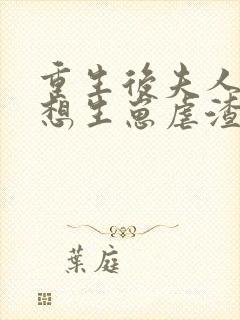 重生後夫人
想生崽虐渣
葉庭